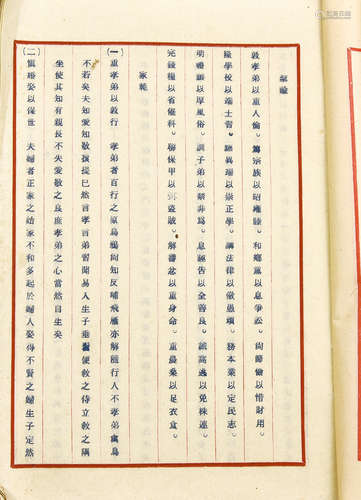 聖諭
敦孝弟以重人倫。篤宗族以昭雍睦。和鄉黨以息爭訟。尚節儉以惜財用。
隆學校以端士習。黜異端以崇正學。講法律以儆愚頑。務本業以定民志。
明禮讓以厚風俗。訓子弟以禁非為。息誣告以全善良。誡匿逃以免株連。
完錢糧以省催科。聯保甲以弭盜賊。解讐忿以重身命。重農桑以足衣食。
家範
(一)重孝弟以敦行 孝弟者百行之原烏鴉尚知反哺飛雁亦解隨行人不孝弟禽鳥
不若矣夫知愛知敬孩提已然言孝言弟習聞易入生子垂髫便教之侍立教之隅
坐使其知有親長不失愛敬之良庶孝弟之心當然自生矣
(二)慎婚娶以保世 夫婦者正家之始家不和多起於婦人娶得不賢之婦生子定然